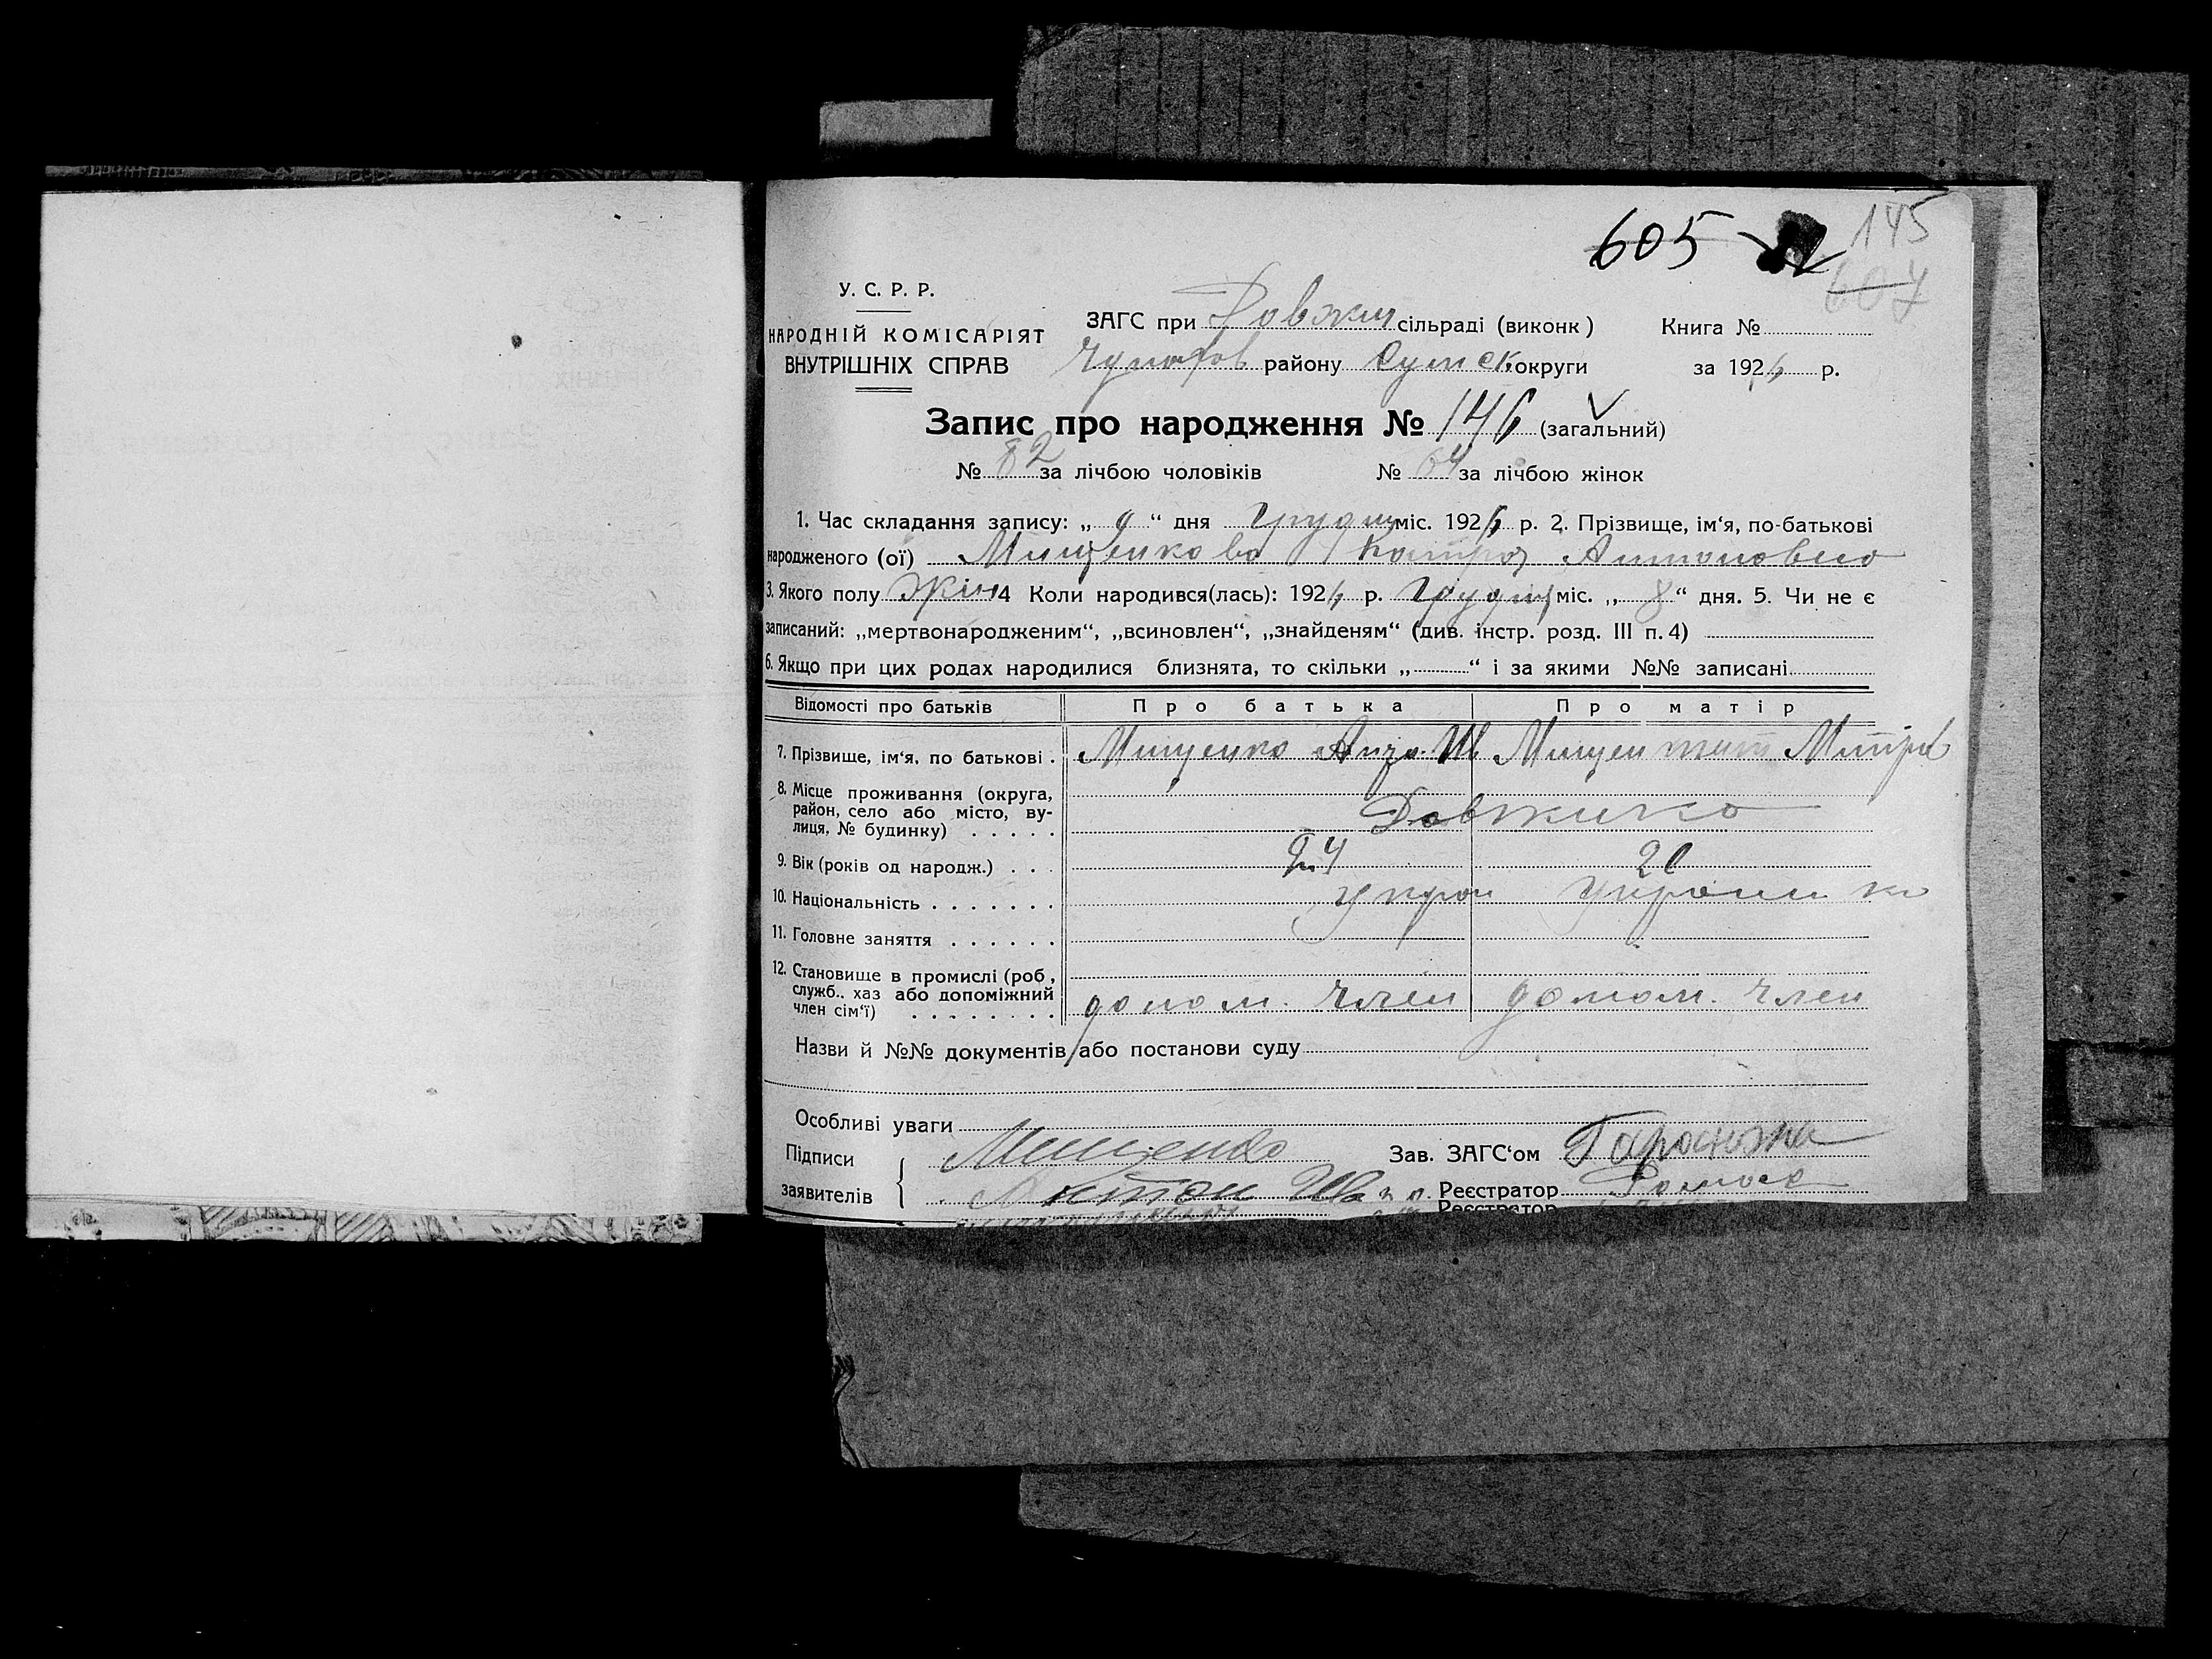 605 145
607
У. С. Р. Р.
НАРОДНІЙ КОМІСАРІЯТ
ВНУТРІШНІХ СПРАВ
ЗАГС при Довжи сільраді (виконк) Книга №
району Сумск. округи за 192 р.
Запис про народження № 146 (загальний)
№ 82 за лічбою чоловіків № 64 за лічбою жінок
1. Час складання запису: „ 9 “ дня Грудня міс. 192 р. 2. Прізвище, ім‘я, по-батькові
народженого (ої) Мищенкова Антоновна
3. Якого полу Жін 4 Коли народився(лась): 192 р. Грудня міс. „ 8 “ дня. 5. Чи не є
записаний: „мертвонародженим“, „всиновлен“, „знайденям“ (див. інстр. розд. III п. 4)
6. Якщо при цих родах народилися близнята, то скільки „ “ і за якими №№ записані
Відомості про батьків Про батька Про матір
7. Прізвище, ім‘я, по батькові . Мищенко Мищен
8. Місце проживання (округа,
район, село або місто, ву-
лиця, № будинку) . . . . . Довжичко
9. Вік (років од народж.) . . . 24
10. Національність . . . . . . . украï Украинка
11. Головне заняття . . . . . .
12. Становище в промислі (роб,
служб.. хаз або допоміжний
член сім‘ї) . . . . . . . . допом. член допом. член
Назви й №№ документів або постанови суду
Особливі уваги
Підписи Мищенко Зав. ЗАГС‘ом
заявителів Антон Реєстратор
Реєстратор